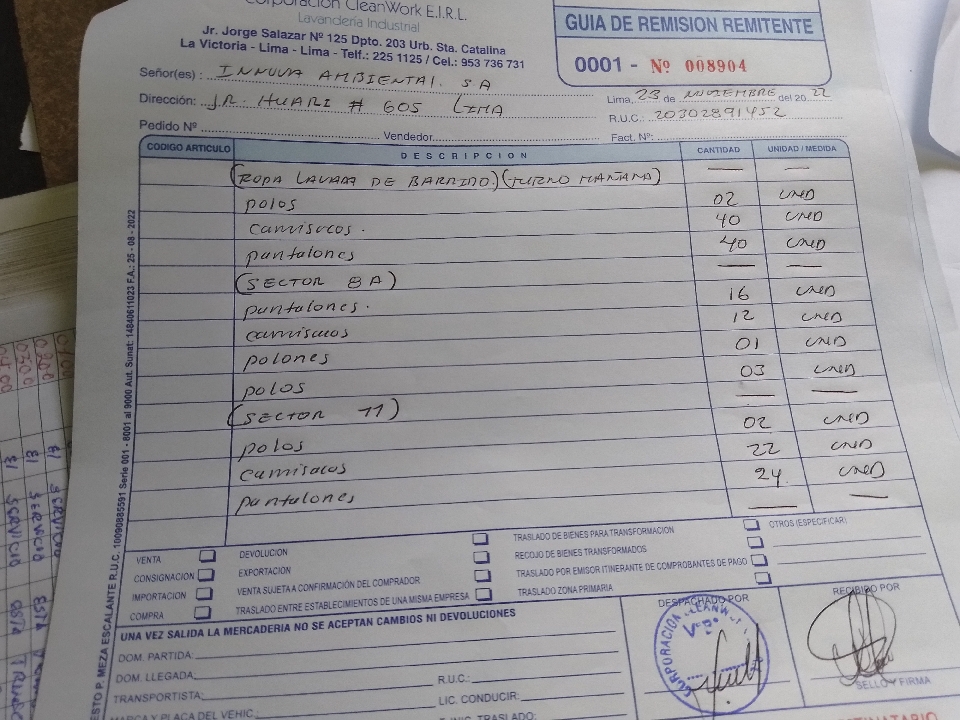 Corporación CleanWork E.I.R.L.
Lavandería Industrial
Jr. Jorge Salazar Nº 125 Dpto. 203 Urb. Sta. Catalina
La Victoria - Lima - Lima - Telf.: 225 1125 / Cel.: 953 736 731
GUIA DE REMISION REMITENTE
0001 - Nº 008904
Señor(es) : INNOVA AMBIENTAL. SA
Dirección: JR. HUARI # 605 LIMA
Lima, 23 de NOVIEMBRE del 2022
R.U.C.: 20302891452
Pedido Nº Vendedor Fact. Nº:
CODIGO ARTICULO DESCRIPCION CANTIDAD UNIDAD / MEDIDA
(ROPA LAVADA DE BARRIDO) (TURNO MAÑANA)
polos 02 UND
camisacos. 40 UND
pantalones 40 UND
(SECTOR 8A)
pantalones. 16 UND
camisacos 12 UND
polones 01 UND
polos 03 UND
(SECTOR 11)
polos 02 UND
camisacos 22 UND
pantalones 24 UND
VENTA
CONSIGNACION
IMPORTACION
COMPRA
DEVOLUCION
EXPORTACION
VENTA SUJETA A CONFIRMACIÓN DEL COMPRADOR
TRASLADO ENTRE ESTABLECIMIENTOS DE UNA MISMA EMPRESA
TRASLADO DE BIENES PARA TRANSFORMACION
RECOJO DE BIENES TRANSFORMADOS
TRASLADO POR EMISOR ITINERANTE DE COMPROBANTES DE PAGO
TRASLADO ZONA PRIMARIA
OTROS (ESPECIFICAR)
UNA VEZ SALIDA LA MERCADERIA NO SE ACEPTAN CAMBIOS NI DEVOLUCIONES
DOM. PARTIDA:
DOM. LLEGADA: R.U.C.:
TRANSPORTISTA: LIC. CONDUCIR:
MARCA Y PLACA DEL VEHIC.:
DESPACHADO POR
CORPORACION CLEANW
VºBº
RECIBIDO POR
SELLO Y FIRMA
ESTO P. MEZA ESCALANTE R.U.C. 10090885591 Serie 001 - 8001 al 9000 Aut. Sunat: 14840611023 F.A.: 25 - 08 - 2022
0200
0300
0400
El SERVICIO
El SERVICIO ESTA
El SERVICIO ESTA